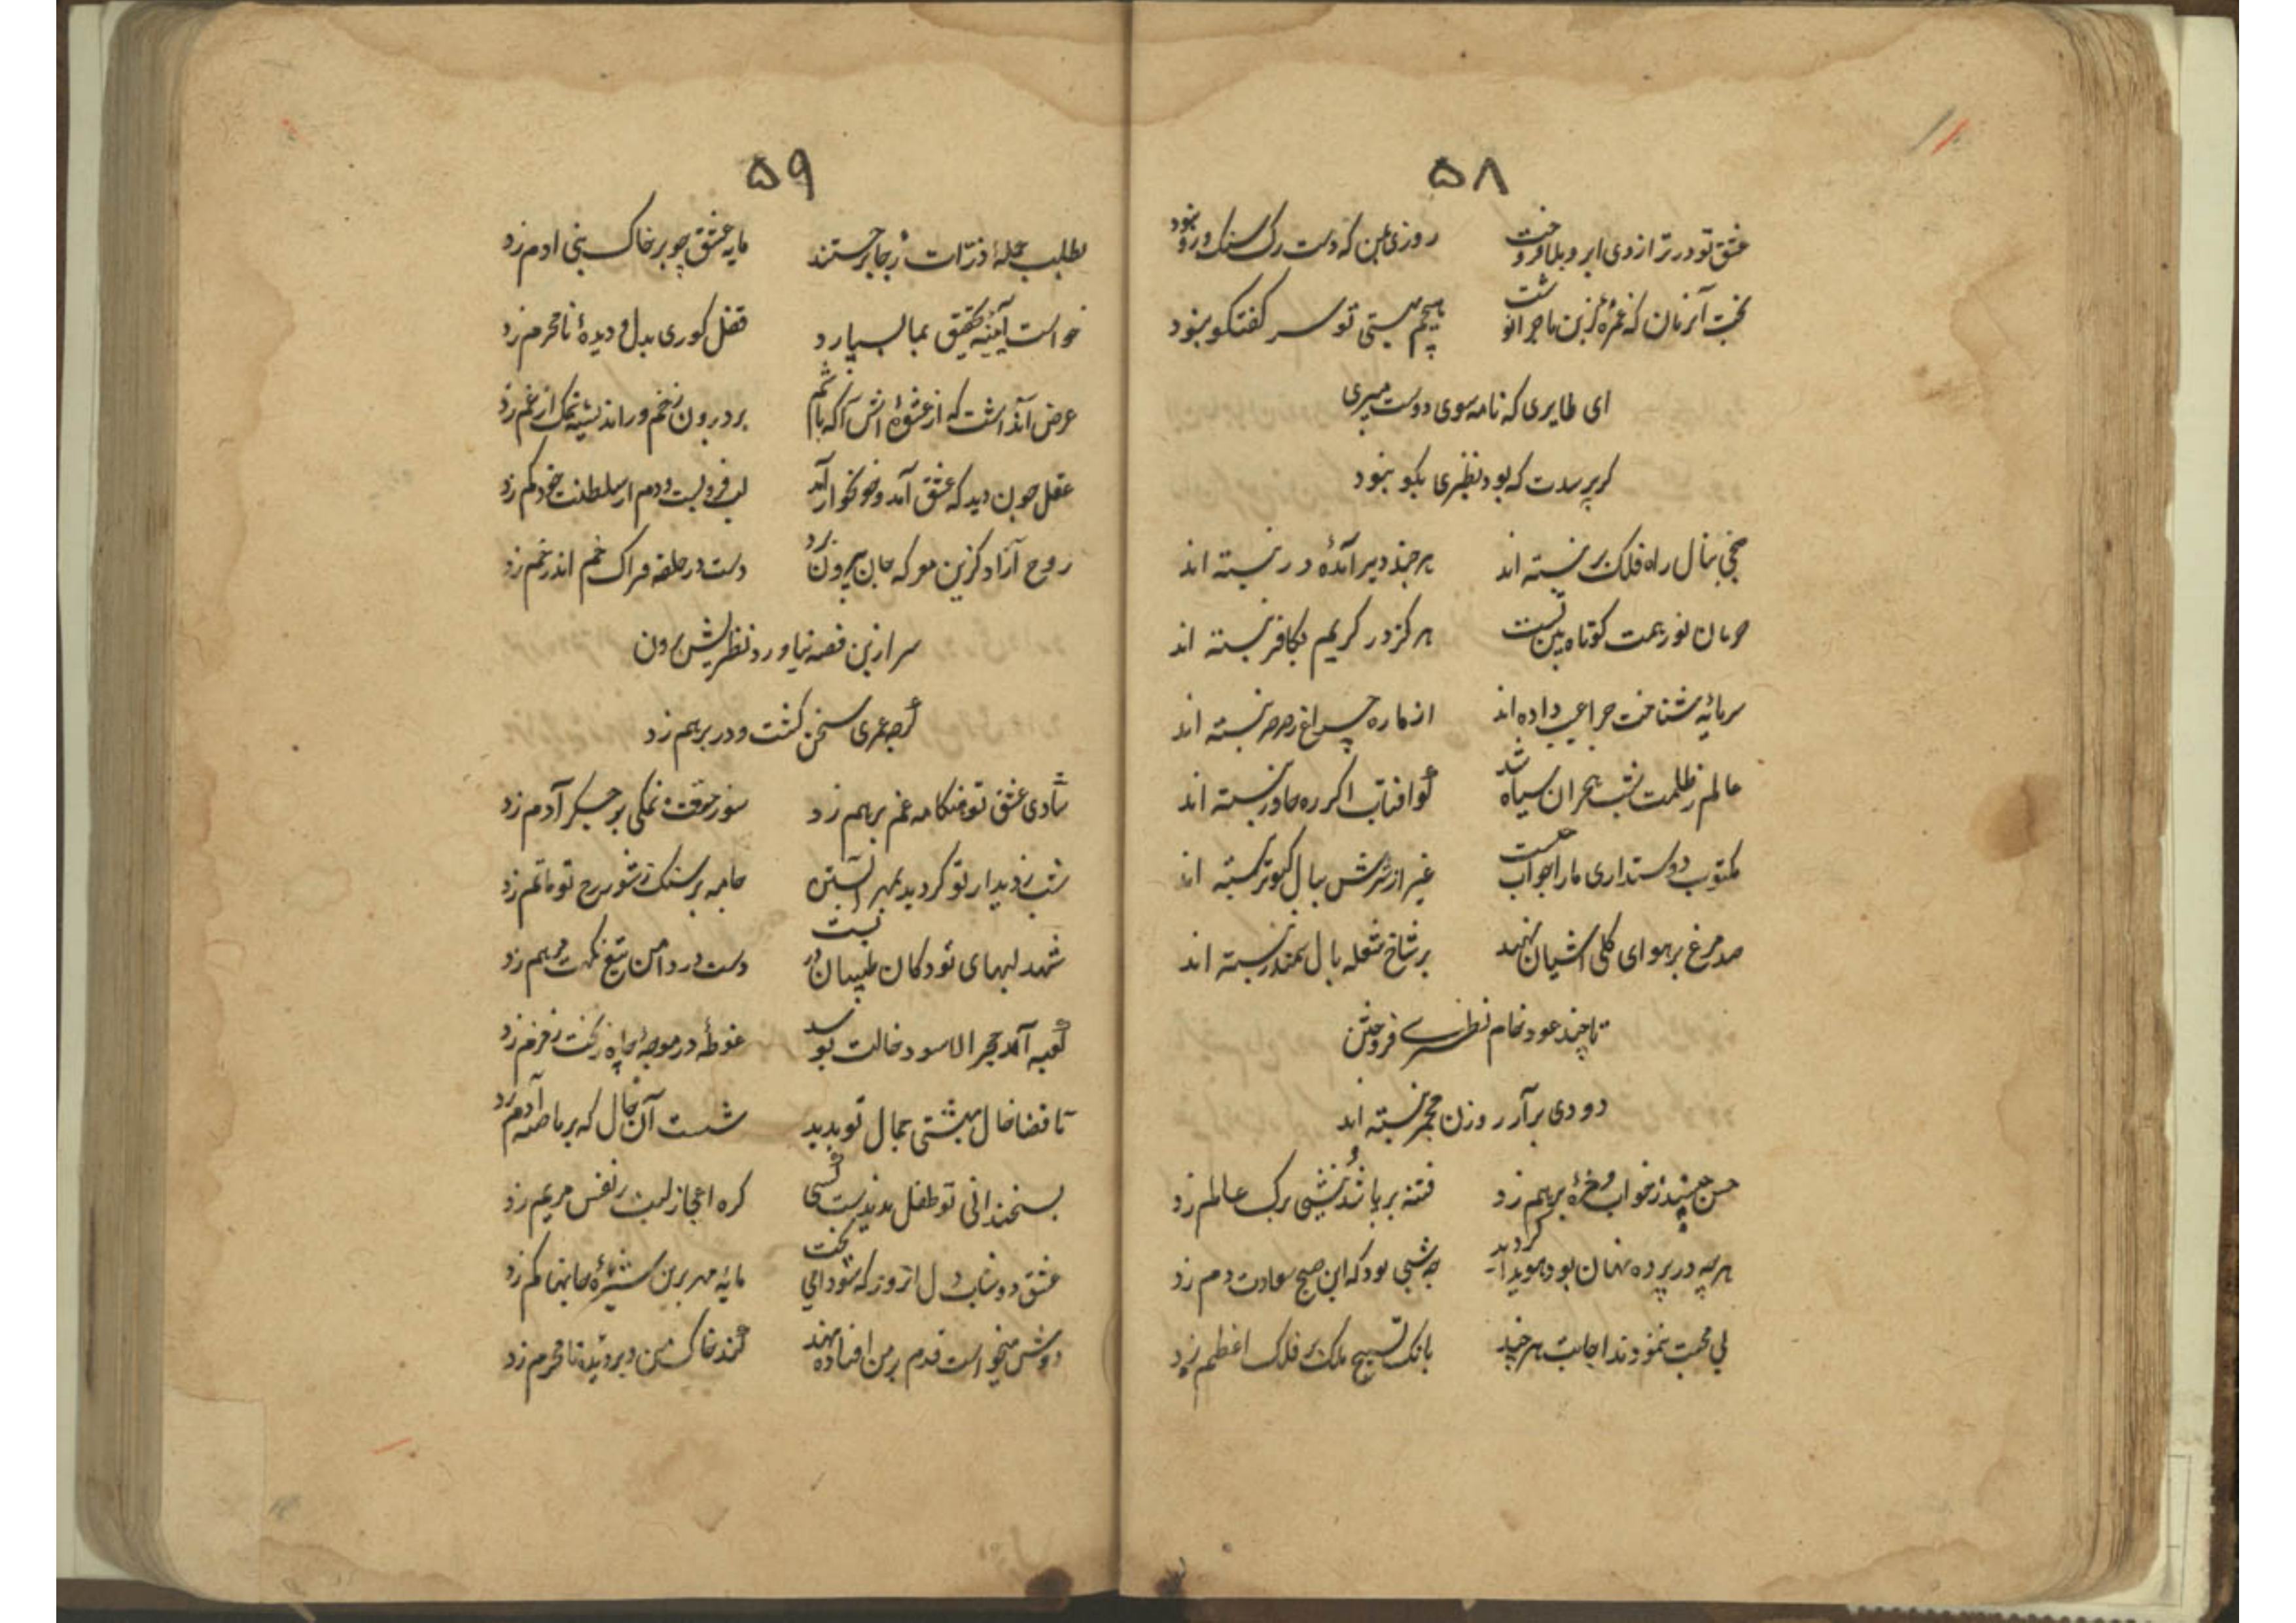 ۵۸
عشق تو در ترازوی ابرو بلا فروخت روزی که دست رک سنک و رو نبود
آنزمان که غمزه ازین ماجرا نوشت با چشم مستی تو سر کفتکو نبود
ای طایری که نامه سوی دوست میبری
کر پرسدت که بود نظیری بکو نبود
راه فلک بر نبسته اند هر چند دیر آمدهٔ در نبسته اند
حرمان تو ز همت کوتاه بین تست هرکز در کریم بکافر نبسته اند
سرمایهٔ شناخت چراغیست داده اند از ماره چراغ ز صرصر نبسته اند
عالم ز ظلمت شب هجران سیاه شد کو افتاب اکر ره خاور نبسته اند
مکتوب دوستداری ما را جواب چیست غیر از سرش ببال کبوتر نبسته اند
صد مرغ بر هوای کلی اشیان نهند بر شاخ شعله بال سمندر نبسته اند
تا چند عود خام نظیری فروختن
دودی برآر روزن مجمر نبسته اند
حسن جنبید ز خواب و مژه برهم زد فتنه بر پا شد و نیشی برک عالم زد
هر چه در پرده نهان بود هویدا کردید چه شبی بود که این صبح سعادت دم زد
بی محبت ننمودند اجابت هر چند بانک تسبیح ملک بر فلک اعظم زد
۵۹
بطلب جملهٔ ذرّات ز جا برجستند مایه عشق چو بر خاک بنی ادم زد
خواست آیینه تحقیق بما بسپارد قفل کوری بدل و دیدهٔ نامحرم زد
عرض آن داشت که از عشوه اش آکه باشم بر درون زخم
عقل چون دید که عشق آمد و خونخوار آمد لب فرو بست و دم از سلطنت خود کم زد
روح آزاد کزین معرکه جان بیرون برد دست در حلقه فتراک خم اندر خم زد
سر ازین قصه نیاورد نظیری بیرون
کرچه عمری سخن کفت و در برهم زد
شادی عشق تو هنکامه غم برهم زد سوز عشقت نمکی بر جکر آدم زد
شب ز دیدار تو کردید بمهر آبستن جامه بر سنک ز شور رخ تو ماتم زد
شهد لبهای تو دکان طبیبان در بست دست در دامن تیغ نکهت مرهم زد
کعبه آمد حجر الاسود خالت بوسد غوطهٔ در موجهٔ چاه زنخت زمزم زد
تا قضا خال بهشتی جمال تو بدید شست آن خال که بر ناصیه آدم زد
بسخندانی تو طفل ندیدست کسی کره اعجاز لبت بر نفس مریم زد
عشق دوشاب دل انروز که سودا می پخت مایهٔ مهر برین شیرهٔ جانها کم زد
دوش میخواست قدم بر من افتاده نهد کند خاک من و بر دیده نامحرم زد